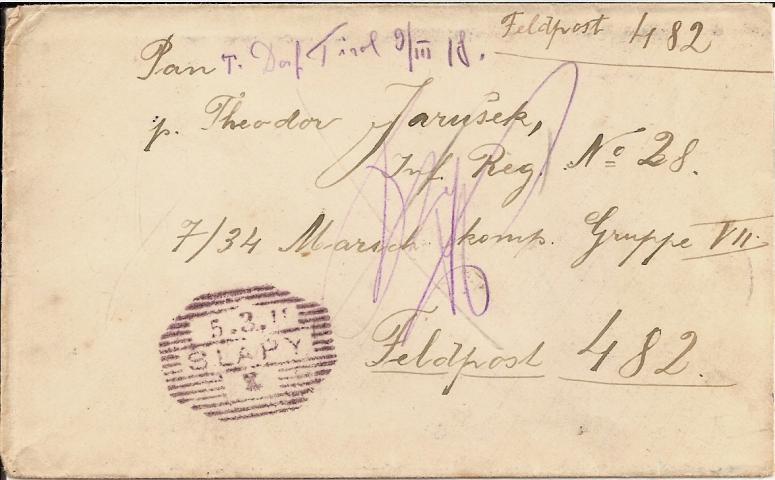 Feldpost 482
Pan T. Dorf Tirol 9/III 18.
p. Theodor Jarušek,
Inf. Reg. No 28.
7/34 Marsch komp. Gruppe VII.
5.3.1
SLAPY
Feldpost 482.